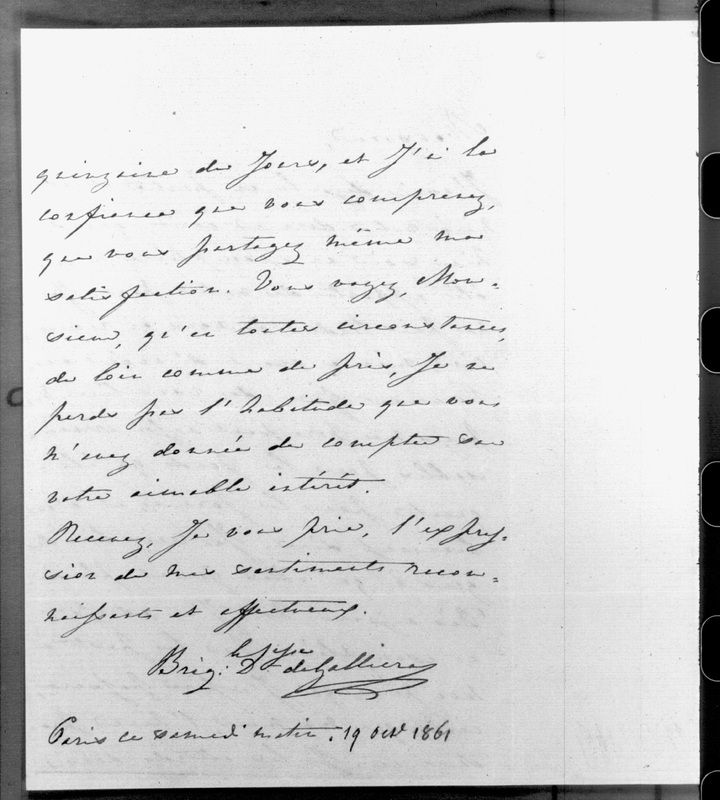 quinzaine de Jours, et J'ai la
confiance que vous comprenez,
que vous partagez même ma
satisfaction. Vous voyez, Mon-
sieur, qu'en toutes circonstances,
de loin comme de près, Je ne
perds pas l'habitude que vous
m'avez donnée de compter sur
votre aimable intérêt.
Recevez, Je vous prie, l'expres-
sion de mes sentiments recon-
naissants et affectueux.
Brig. Dsse de Galliera
Paris ce samedi matin. 19 oct. 1861